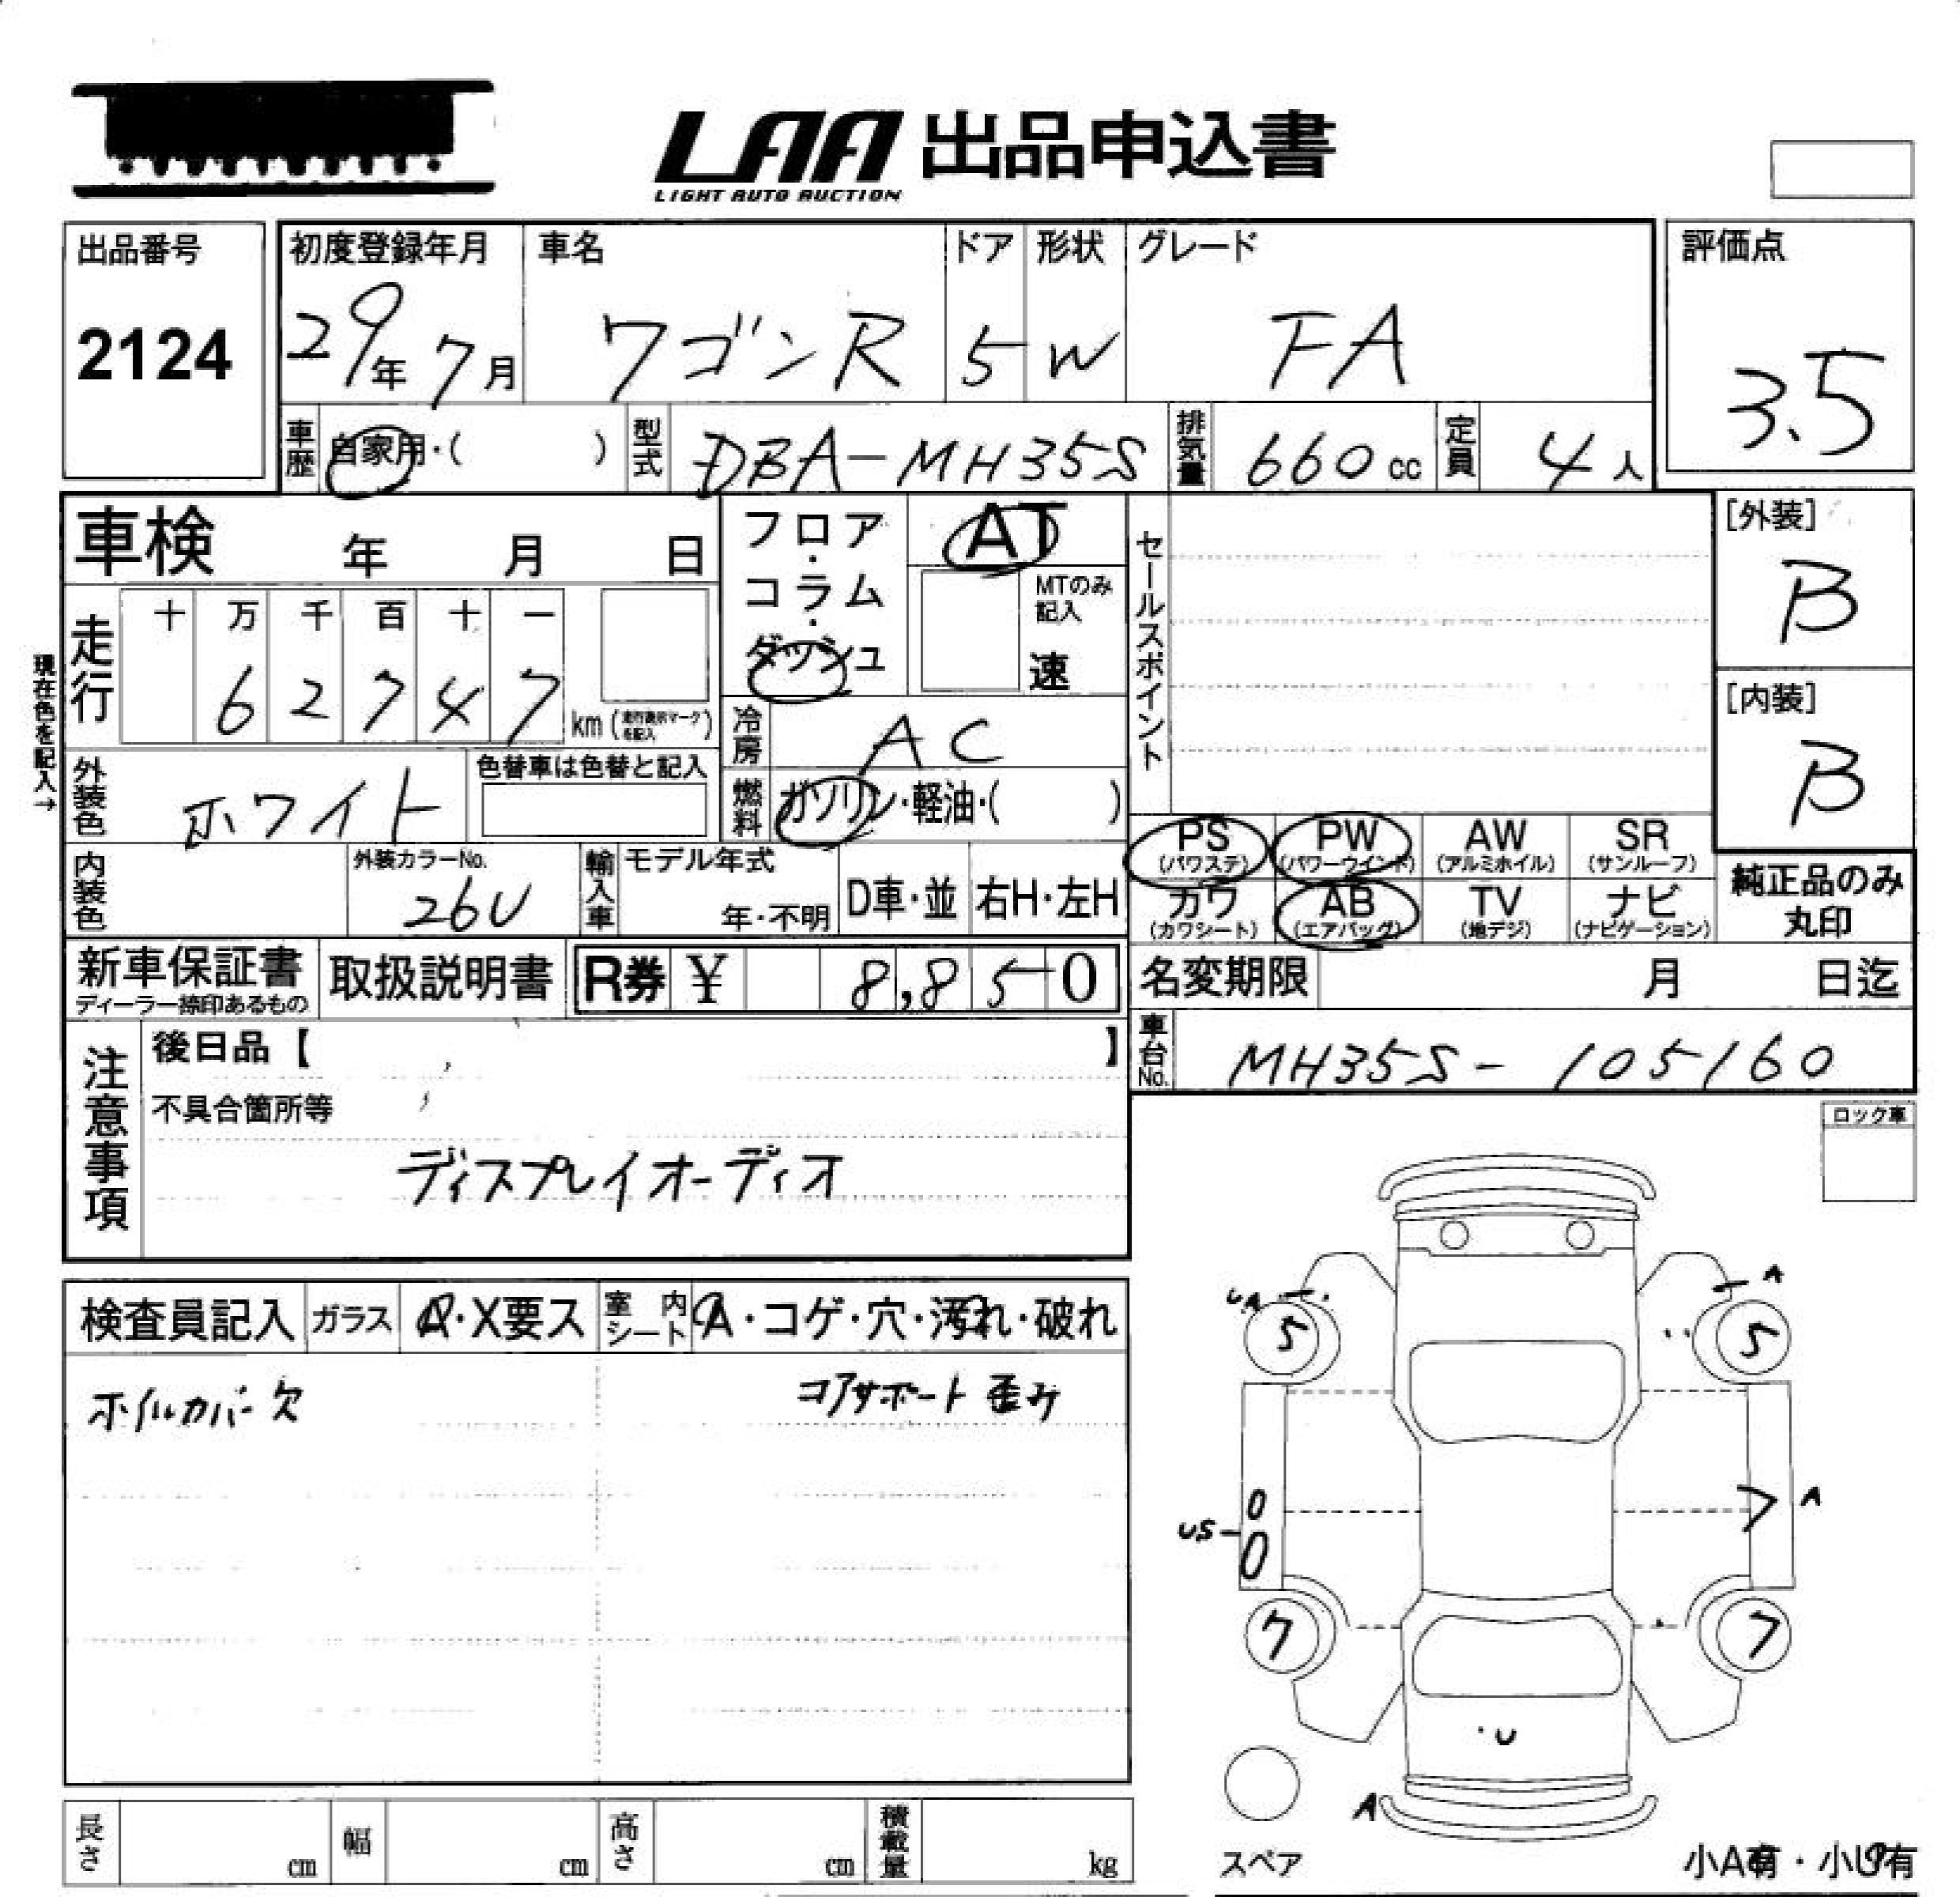 LAA 出品申込書
LIGHT AUTO AUCTION
出品番号
2124
初度登録年月
29年 7月
車名
ワゴンR
ドア
5
形状
W
グレード
FA
評価点
3.5
車歴 自家用・( )
型式 DBA-MH35S
排気量 660cc
定員 4人
車検 年 月 日
フロア・コラム・ダッシュ
AT
MTのみ記入
速
セールスポイント
[外装]
B
[内装]
B
現在色を記入→
走行 十 万 千 百 十 一
6 2 7 4 7 km (走行表示マークを記入)
冷房 AC
燃料 ガソリン・軽油・( )
外装色 ホワイト
色替車は色替と記入
内装色
外装カラーNo.
26U
輸入車 モデル年式
年・不明
D車・並
右H・左H
PS (パワステ)
PW (パワーウインド)
AW (アルミホイル)
SR (サンルーフ)
カワ (カワシート)
AB (エアバッグ)
TV (地デジ)
ナビ (ナビゲーション)
純正品のみ丸印
新車保証書
ディーラー捺印あるもの
取扱説明書
R券 ¥ 8,850
名変期限 月 日迄
車台No. MH35S-105160
注意事項
後日品【 】
不具合箇所等
ディスプレイオーディオ
ロック車
検査員記入
ガラス A・X要ス
室内シート A・コゲ・穴・汚れ・破れ
ホイルカバー欠
コアサポート歪み
UA
A
5
5
US
A
7
7
U
A
スペア
小A有・小U有
長さ cm
幅 cm
高さ cm
積載量 kg